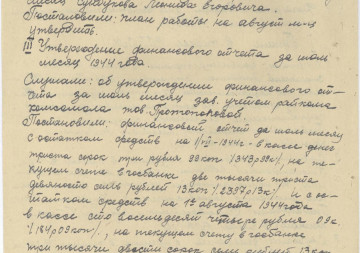 Леонида Егоровича.
Постановили: план работы на август м-ц
утвердить.
III Утверждение финансового отчета за июль
месяц 1944 года
Слушали: об утверждении финансового от-
чета за июль месяц зав. учетом райкома
комсомола тов.
Постановили: финансовый отчет за июль месяц
с остатком средств на 1/VII-1944г. в кассе денег
триста сорок три рубля 99 коп /343р99к/, на те-
кущем счету в госбанке две тысячи триста
девяносто семь рублей 13 коп /2397р13к/ и с ос-
татком средств на 1е августа 1944 года
в кассе сто восемьдесят четыре рубля 09 к.
/184р09коп/, на текущем счету в госбанке
три тысячи двести сорок рублей 13 коп